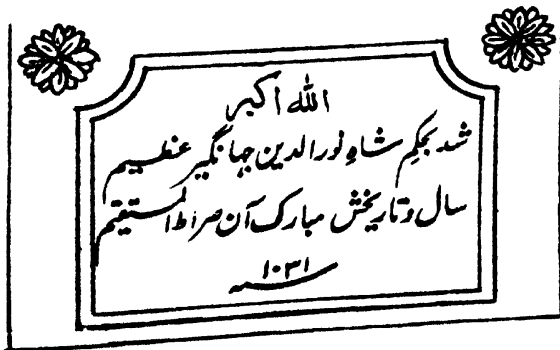 الله اکبر
شد بحکمِ شاہِ نورالدین جہانگیرِ عظیم
سال و تاریخش مبارک آن صراط المستقیم
سنہ ۱۰۳۱